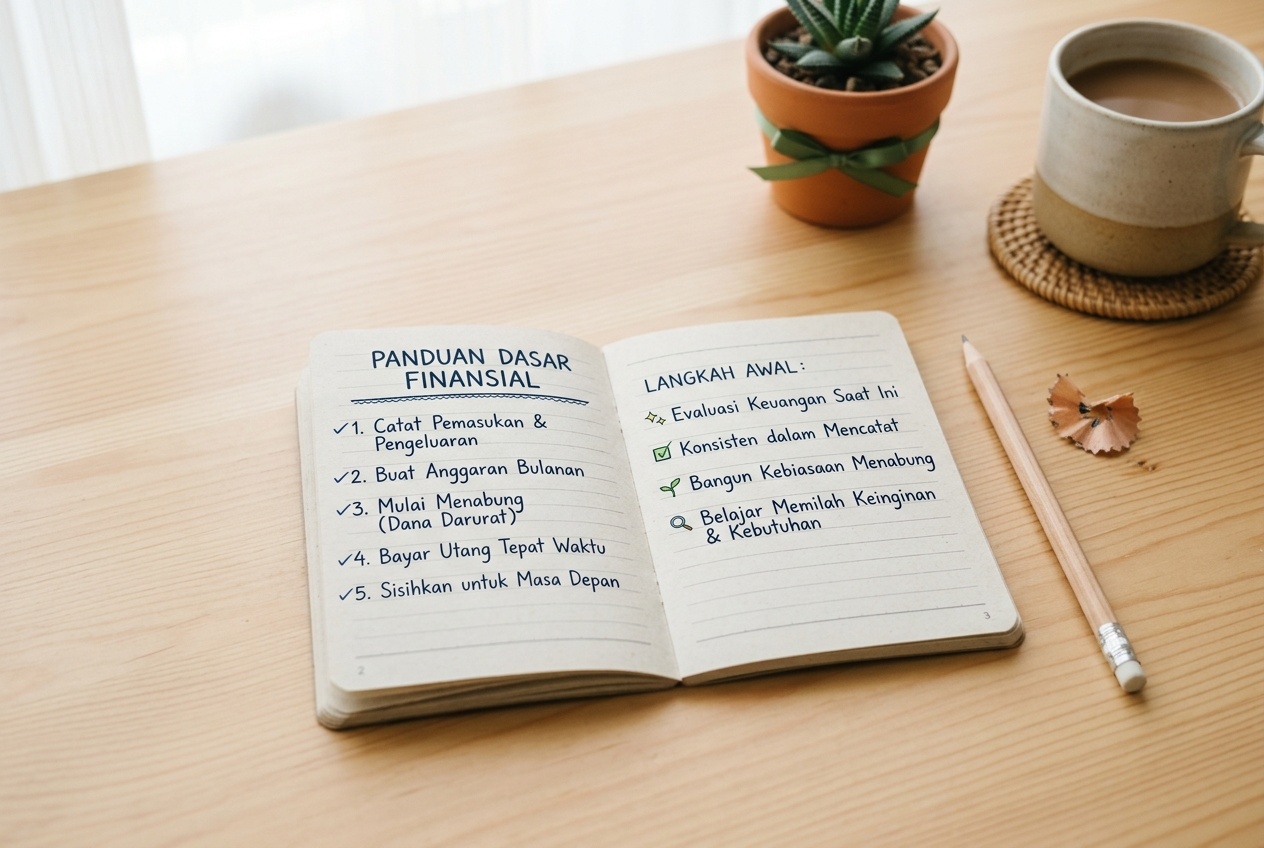 PANDUAN DASAR
FINANSIAL
✓1. Catat Pemasukan &
Pengeluaran
✓2. Buat Anggaran Bulanan
✓3. Mulai Menabung
(Dana Darurat)
✓4. Bayar Utang Tepat Waktu
✓5. Sisihkan untuk Masa Depan
2
LANGKAH AWAL:
✨ Evaluasi Keuangan Saat Ini
✅ Konsisten dalam Mencatat
🌱 Bangun Kebiasaan Menabung
🔍 Belajar Memilah Keinginan
& Kebutuhan
3